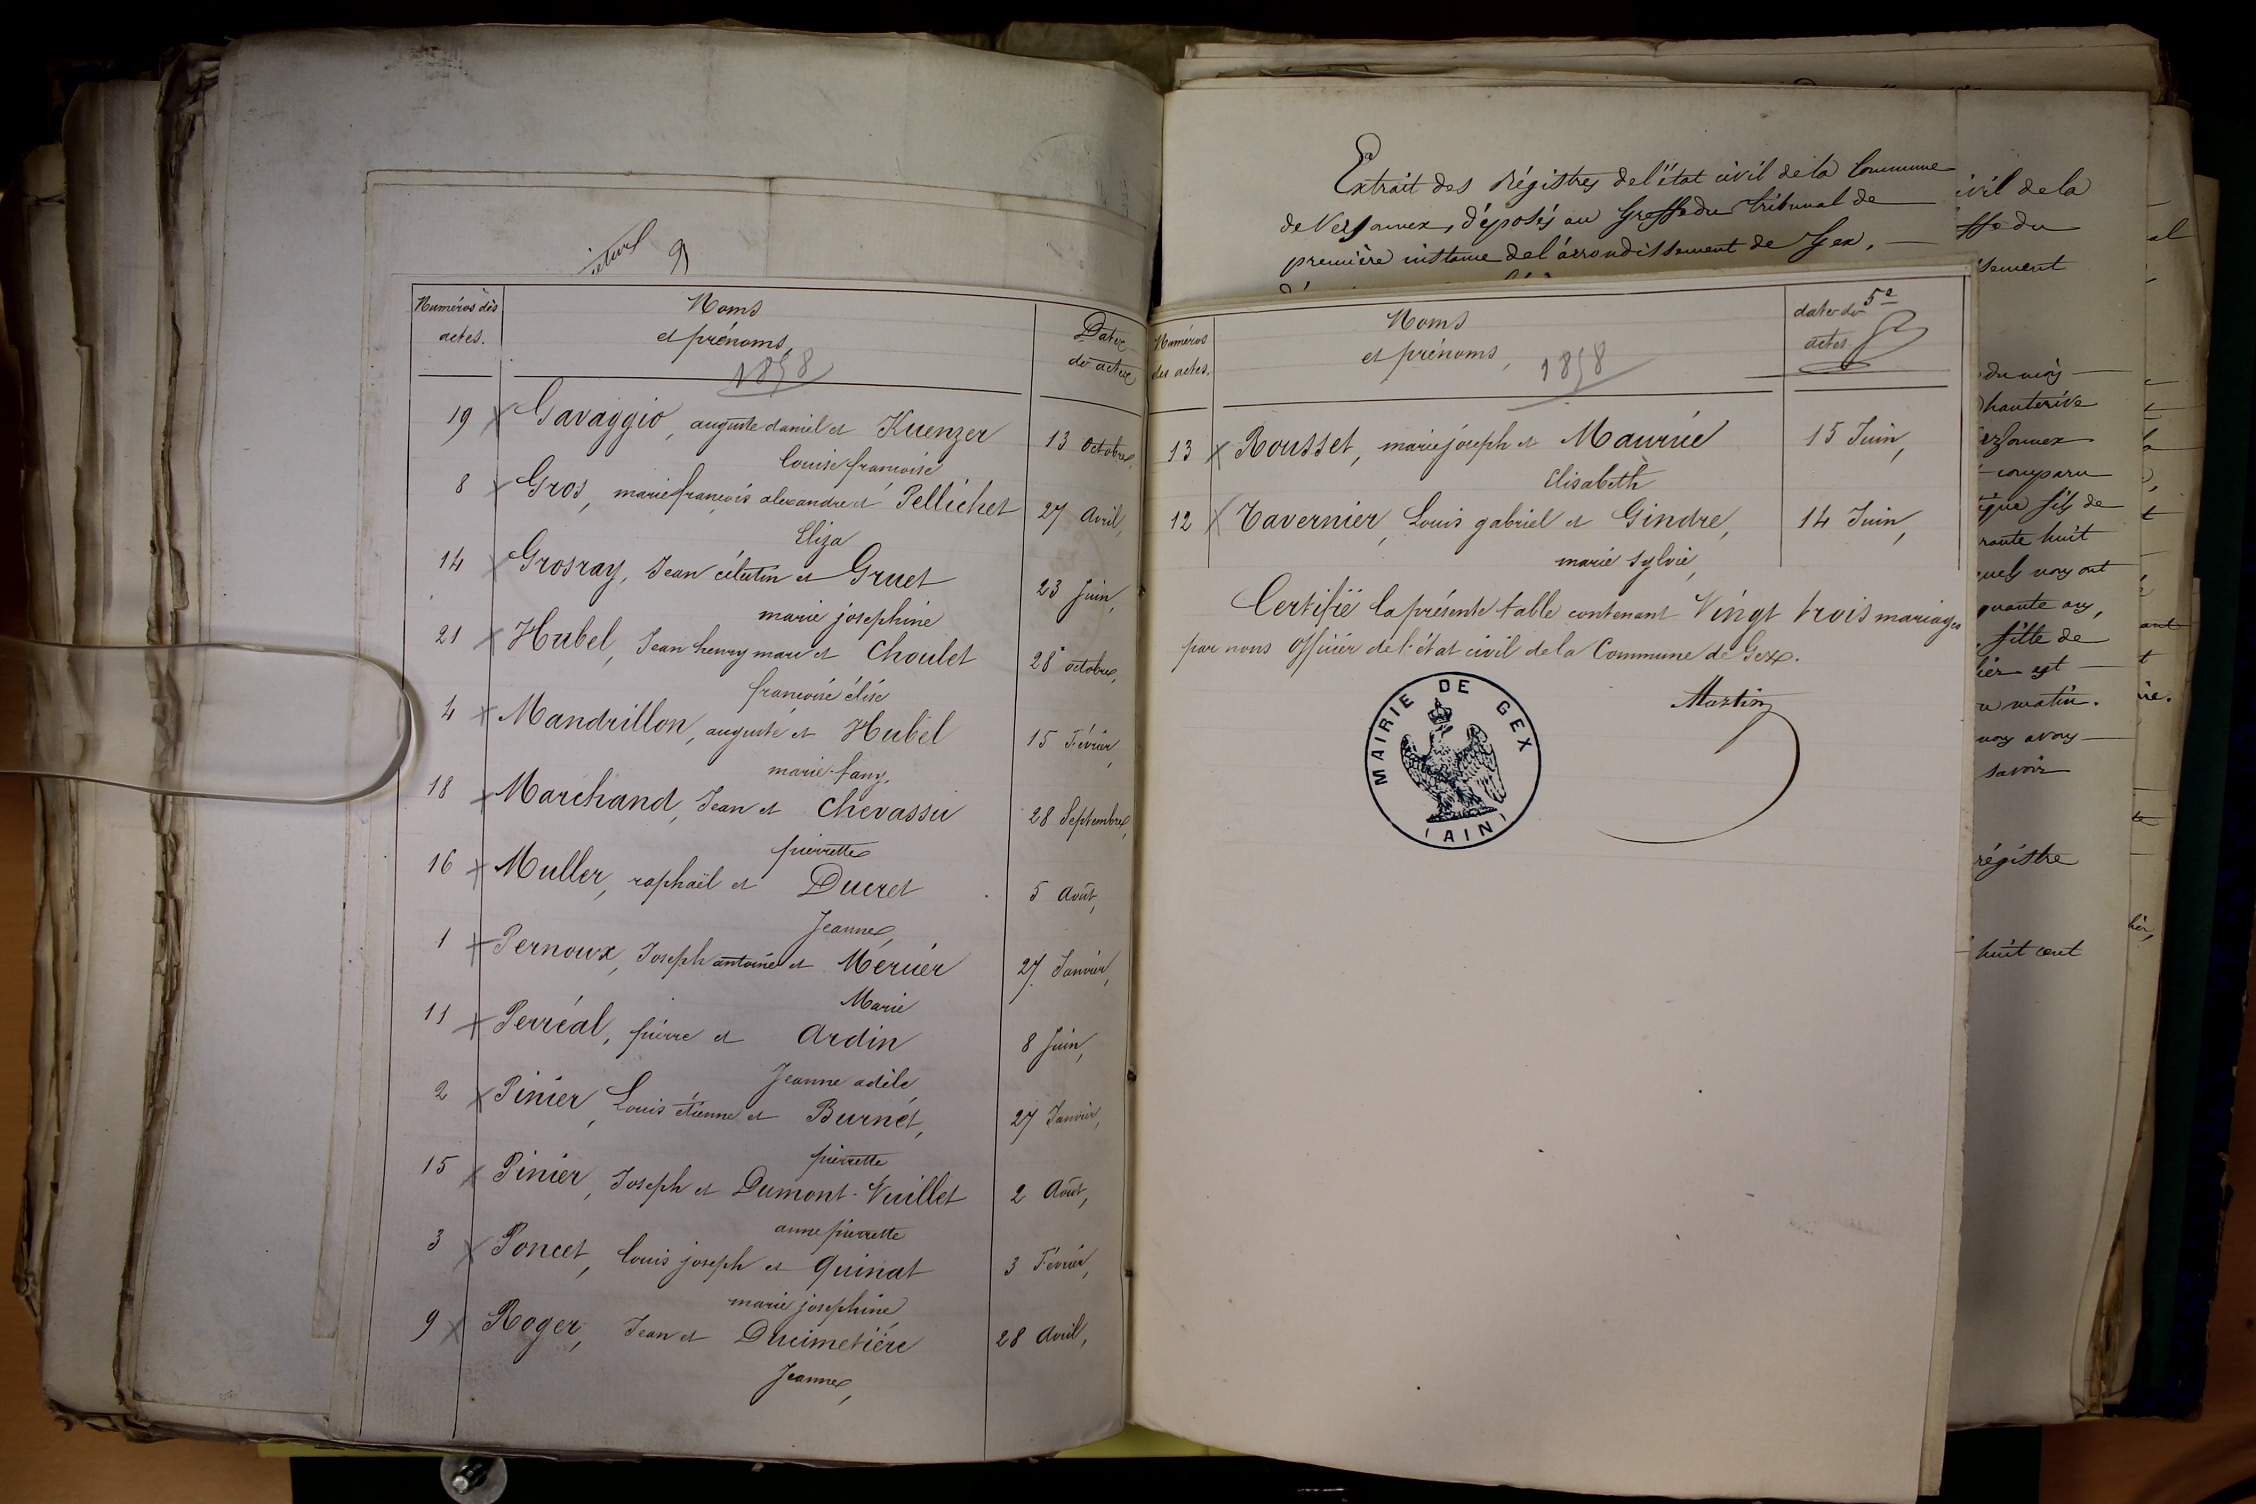 Numéros dès
actes.
Noms
et prénoms,
1858
Dates
des actes
19 Gavaggio, auguste daniel et Kuenzer 13 octobre,
louise françoise
8 Gros, marie françois alexandre et Pellichet 27 Avril,
Eliza
14 Grosray, Jean célestin et Gruet 23 Juin,
marie josephine
21 Hubel, Jean henry marc et Choulet 28 octobre,
françoise élise
4 Mandrillon, auguste et Hubel 15 Février,
marie fany,
18 Marchand, Jean et Chevassu 28 Septembre,
pierrette
16 Muller, raphaël et Ducret 5 Août,
Jeanne,
1 Pernoux, Joseph antoine et Mercier 27 Janvier,
Marie
11 Perréal, pierre et Ardin 8 Juin,
Jeanne adèle,
2 Pinier, Louis étienne et Burnet, 27 Janvier,
pierrette
15 Pinier, Joseph et Dumont-Vuillet 2 Août,
anne pierrette
3 Poncet, louis joseph et Quinat 3 Février,
marie josephine,
9 Roger, Jean et Ducimetière 28 Avril,
Jeanne,
Extrait des Régistres de l'état civil de la Commune
de Versonnex, déposés au Greffe du tribunal de
première instance de l'arrondissement de Gex,
Numéros
des actes.
Noms
et prénoms,
1858
5e
actes
13 Rousset, marie joseph et Maurié 15 Juin,
Elisabeth
12 Tavernier, Louis gabriel et Gindre, 14 Juin,
marie sylvie,
Certifié la présente table contenant Vingt trois mariages
par nous officier de l'état civil de la Commune de Gex.
Martin
MAIRIE DE GEX
(AIN)
ivil de la
ffe du
sement
du mois
hauterive
comparu
fils de
rante huit
quels nous ont
quante ans,
fille de
est
matin.
nous avons
savoir
régistre
huit cent